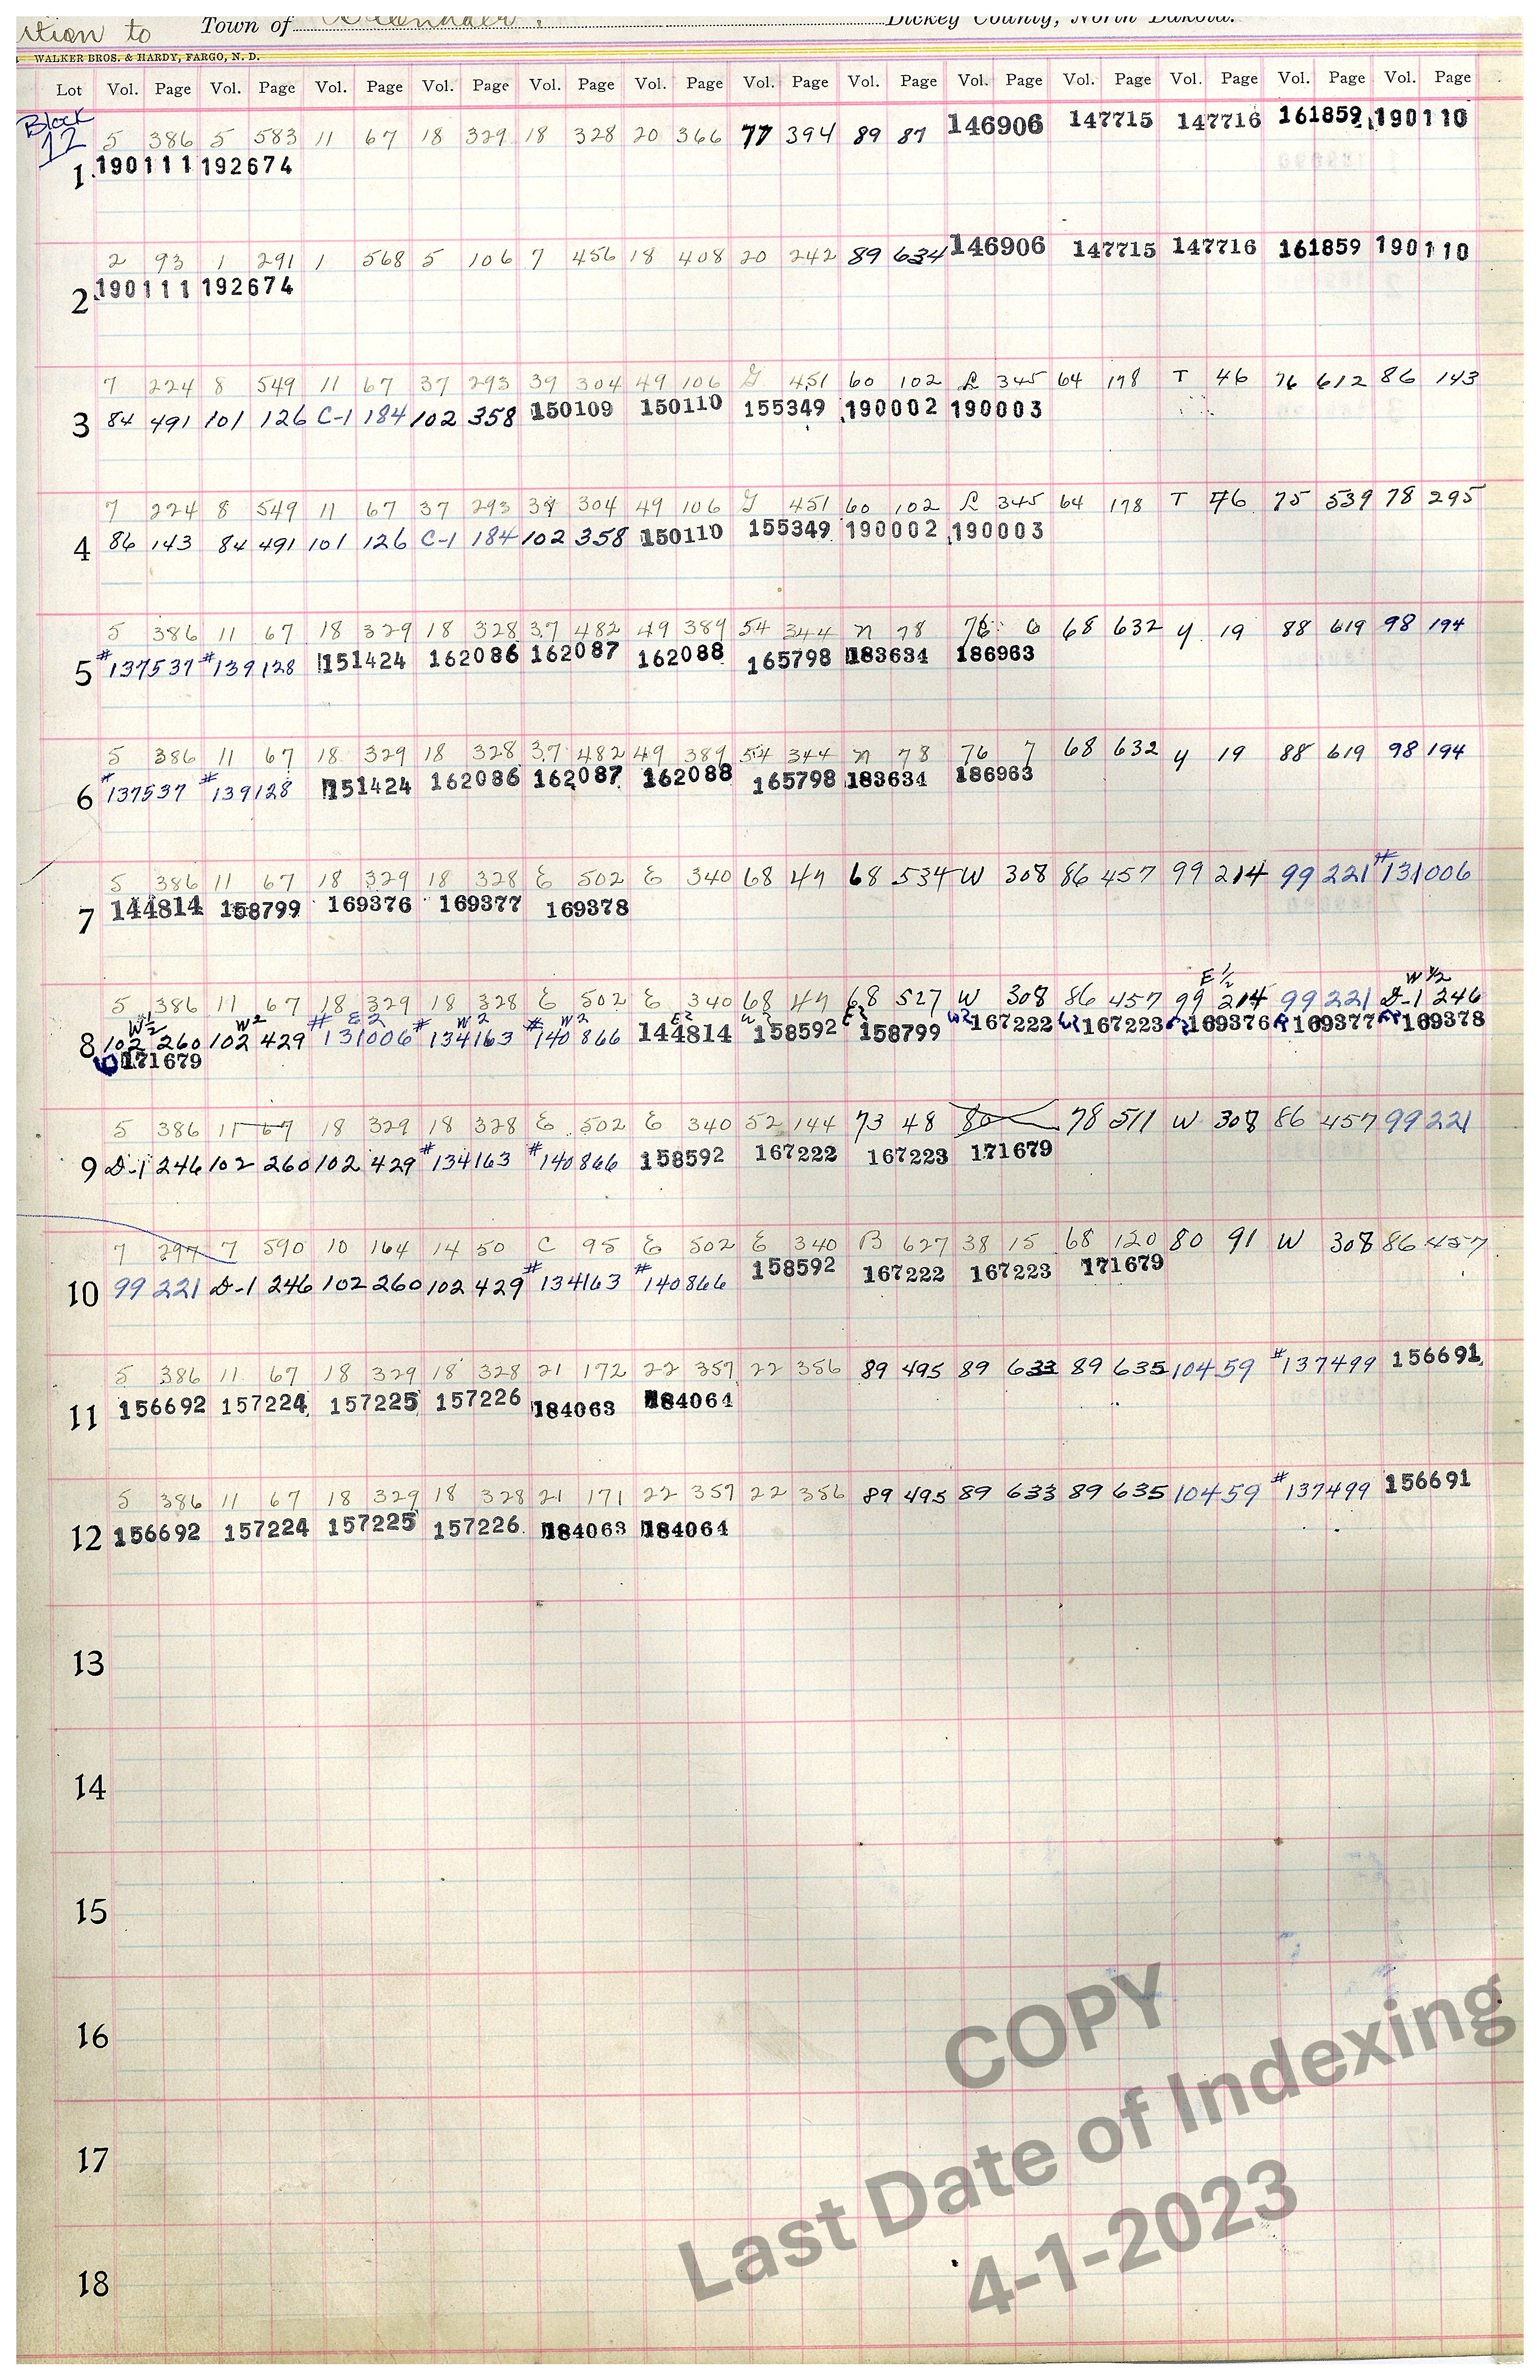 ition to Town of Dickey County, North Dakota.
WALKER BROS. & HARDY, FARGO, N. D.
Lot Vol. Page Vol. Page Vol. Page Vol. Page Vol. Page Vol. Page Vol. Page Vol. Page Vol. Page Vol. Page Vol. Page Vol. Page Vol. Page
Block
12
5 386 5 583 11 67 18 329 18 328 20 366 77 394 89 87 146906 147715 147716 161859 190110
1 190111 192674
2 93 1 291 1 568 5 106 7 456 18 408 20 242 89 634 146906 147715 147716 161859 190110
2 190111 192674
7 224 8 549 11 67 37 293 39 304 49 106 G 451 60 102 L 345 64 178 T 46 76 612 86 143
3 84 491 101 126 C-1 184 102 358 150109 150110 155349 190002 190003
7 224 8 549 11 67 37 293 39 304 49 106 G 451 60 102 L 345 64 178 T 46 75 539 78 295
4 86 143 84 491 101 126 C-1 184 102 358 150110 155349 190002 190003
5 386 11 67 18 329 18 328 37 482 49 389 54 344 n 78 76 6 68 632 y 19 88 619 98 194
5 #137537 #139128 151424 162086 162087 162088 165798 183634 186963
5 386 11 67 18 329 18 328 37 482 49 389 54 344 n 78 76 7 68 632 y 19 88 619 98 194
6 #137537 #139128 151424 162086 162087 162088 165798 183634 186963
5 386 11 67 18 329 18 328 E 502 E 340 68 47 68 534 W 308 86 457 99 214 99 221 #131006
7 144814 158799 169376 169377 169378
E 1/2 W 1/2
5 386 11 67 18 329 18 328 E 502 E 340 68 47 68 527 W 308 86 457 99 214 99 221 D-1 246
W 1/2 W2 E2 W2 W2 E2 W2 E2 W2
8 102 260 102 429 #131006 #134163 #140866 144814 158592 158799 167222 167223 169376 169377 169378
171679
5 386 11 67 18 329 18 328 E 502 E 340 52 144 73 48 80 78 511 W 308 86 457 99 221
9 D-1 246 102 260 102 429 #134163 #140866 158592 167222 167223 171679
7 297 7 590 10 164 14 50 C 95 E 502 E 340 B 627 38 15 68 120 80 91 W 308 86 457
10 99 221 D-1 246 102 260 102 429 #134163 #140866 158592 167222 167223 171679
5 386 11 67 18 329 18 328 21 172 22 357 22 356 89 495 89 633 89 635 104 59 #137499 156691
11 156692 157224 157225 157226 184063 184064
5 386 11 67 18 329 18 328 21 171 22 357 22 356 89 495 89 633 89 635 104 59 #137499 156691
12 156692 157224 157225 157226 184063 184064
13
14
15
16
17
18
COPY
Last Date of Indexing
4-1-2023